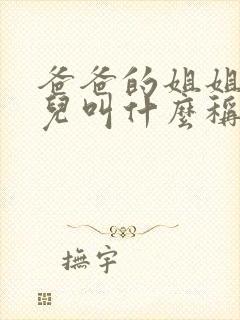 爸爸的姐姐
兒叫什麼稱
撫宇